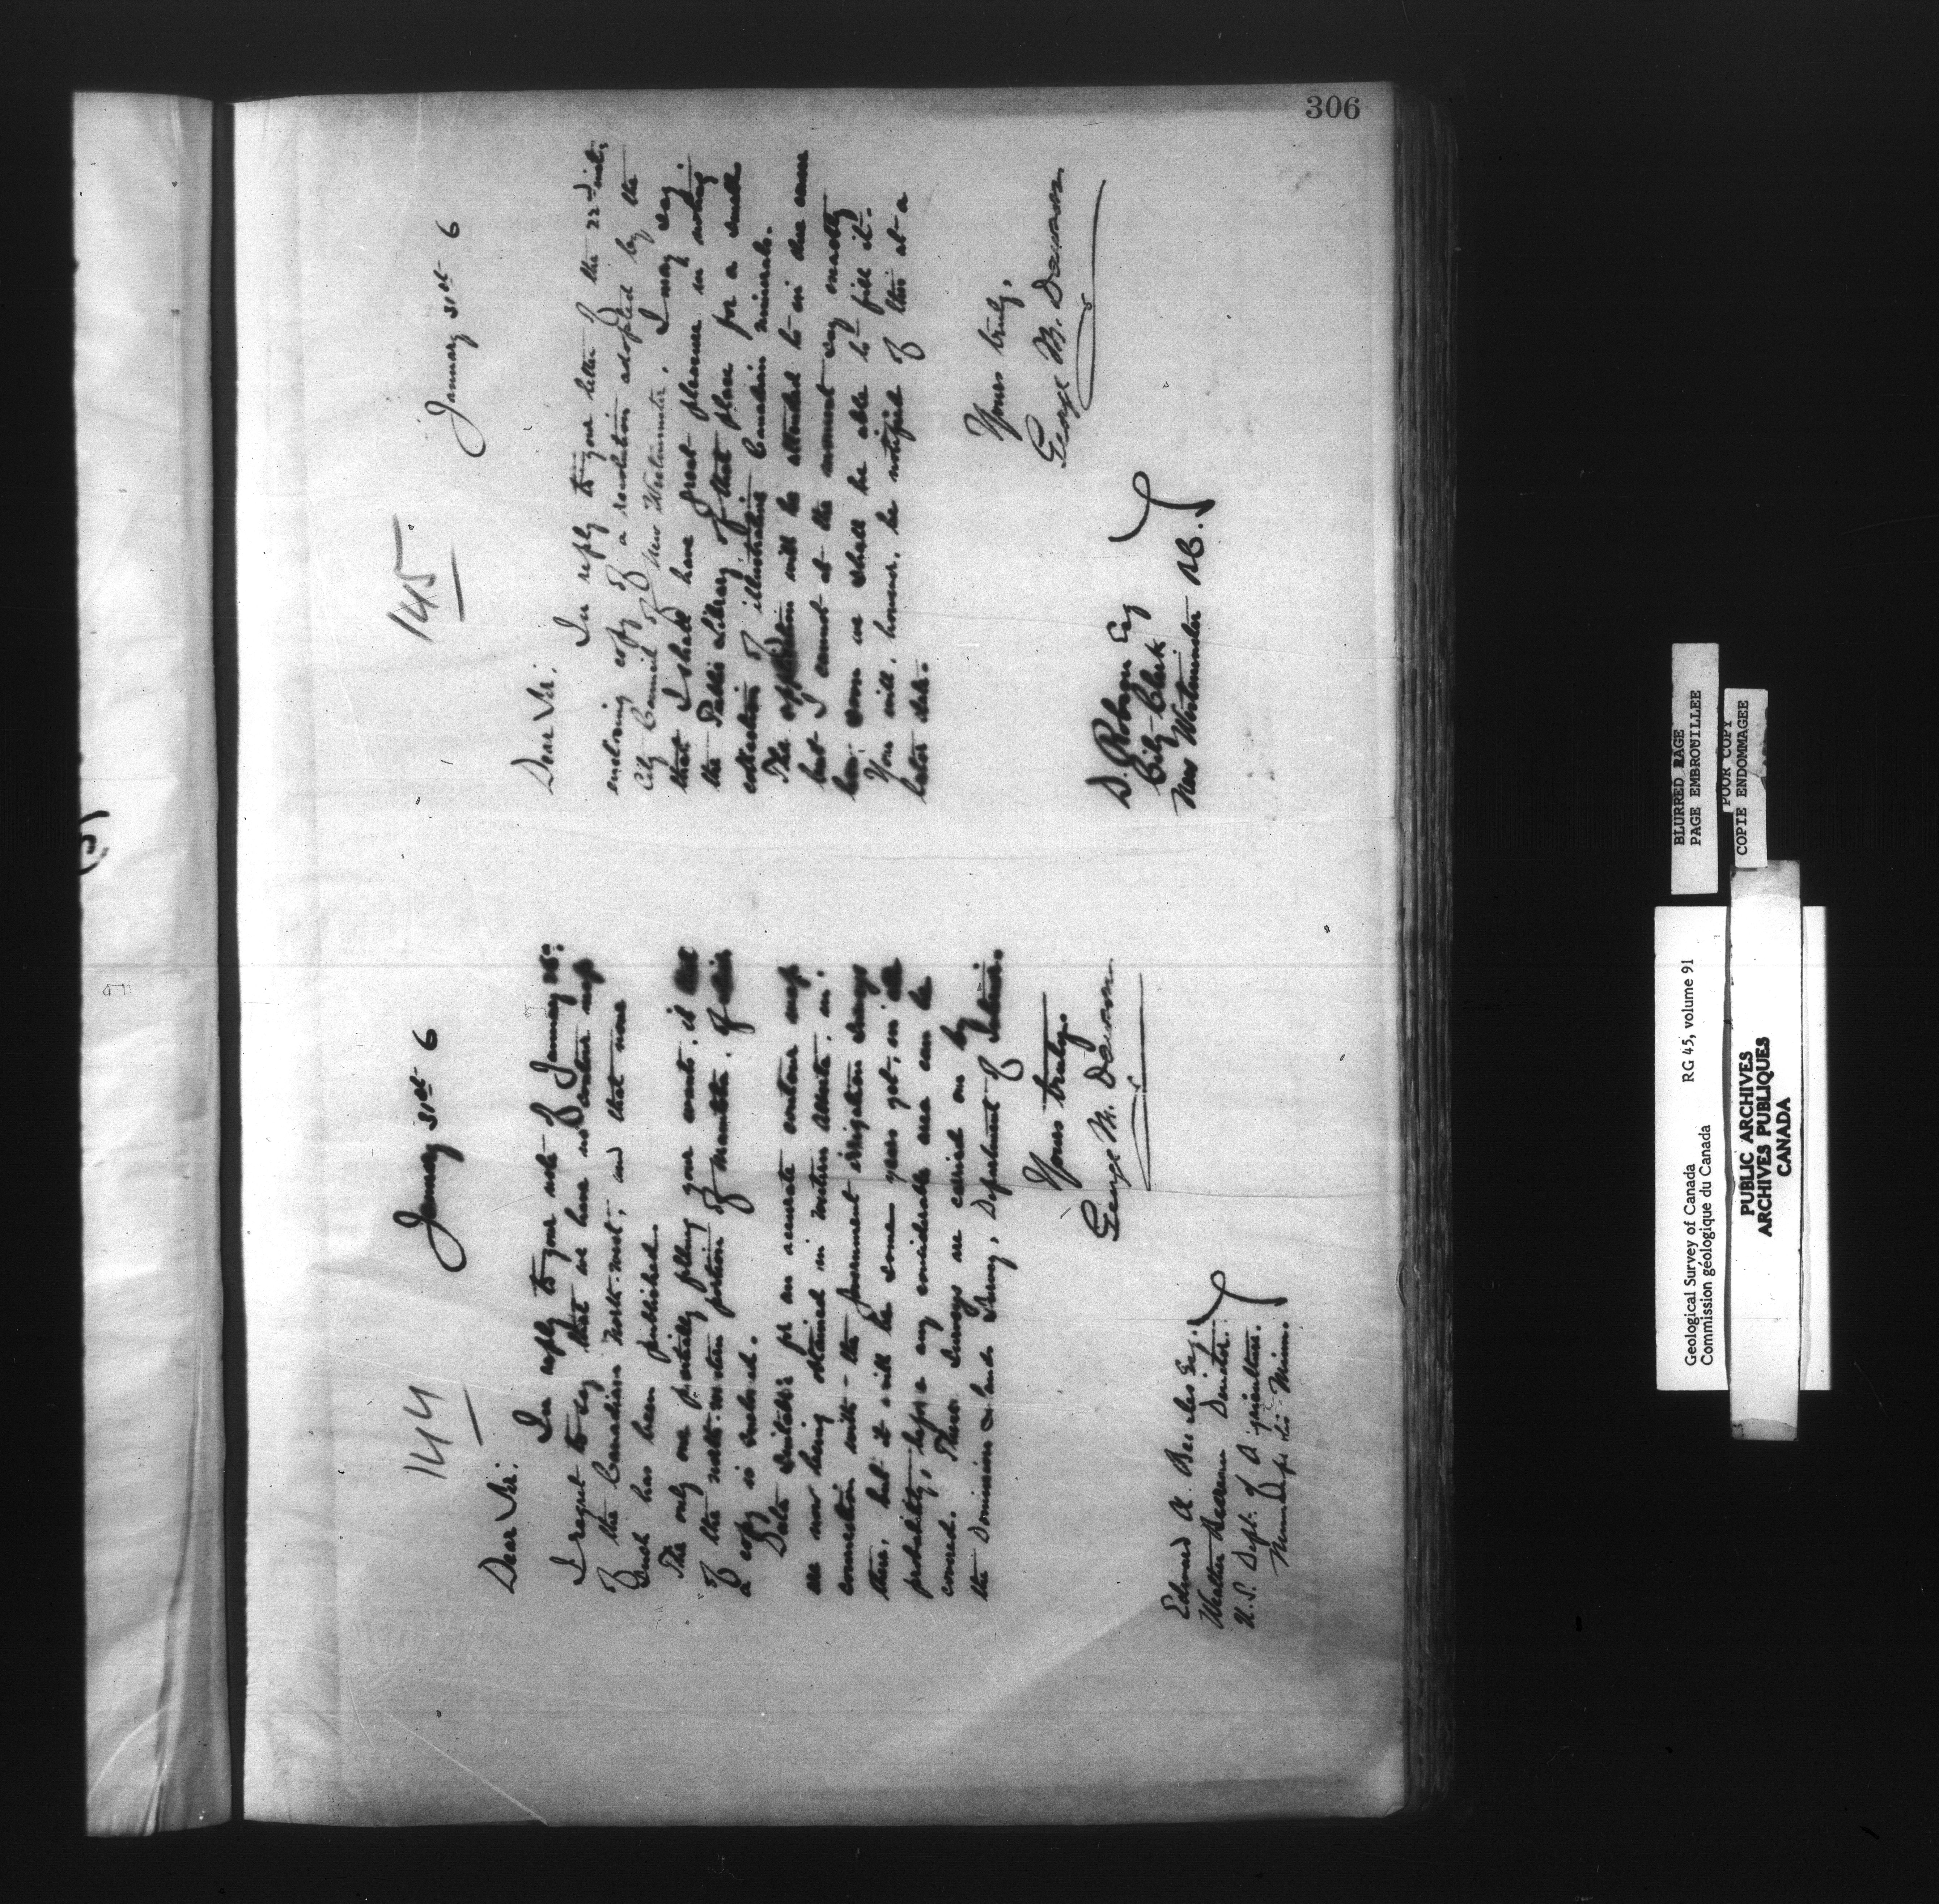 306
144
January 31st 6
Dear Sir:
In reply to your note of January 28th
I regret to say that we have no contour map
of the Canadian North-west, and that none
such has been published.
The only one partially filling your wants, is that
of the north-western portion of Manitoba, of which
a copy is enclosed.
Data suitable for an accurate contour map
are now being obtained in western Alberta, in
connection with the government irrigation surveys
there, but it will be some years yet, in all
probability, before any considerable area can be
covered. These surveys are carried on by
the Dominion Lands Survey, Department of Interior.
Yours truly,
George M. Dawson
Edward A. Beals Esq.
Weather Bureau Director.
U.S. Dept. of Agriculture.
Minneapolis Minn.
145
January 31st 6
Dear Sir:
In reply to your letter of the 22nd inst.
enclosing copy of a resolution adopted by the
City Council of New Westminster, I may say
that I shall have great pleasure in noting
the Public Library of that place for a small
collection of illustrative Canadian minerals.
The application will be attended to in due course
but I cannot at the moment say exactly
how soon we shall be able to fill it.
You will, however, be notified of this at a
later date.
Yours truly,
George M. Dawson
D. Robson Esq
City Clerk
New Westminster B.C.
BLURRED PAGE
PAGE EMBROUILLEE
POOR COPY
COPIE ENDOMMAGEE
Geological Survey of Canada
Commission géologique du Canada
RG 45, volume 91
PUBLIC ARCHIVES
ARCHIVES PUBLIQUES
CANADA